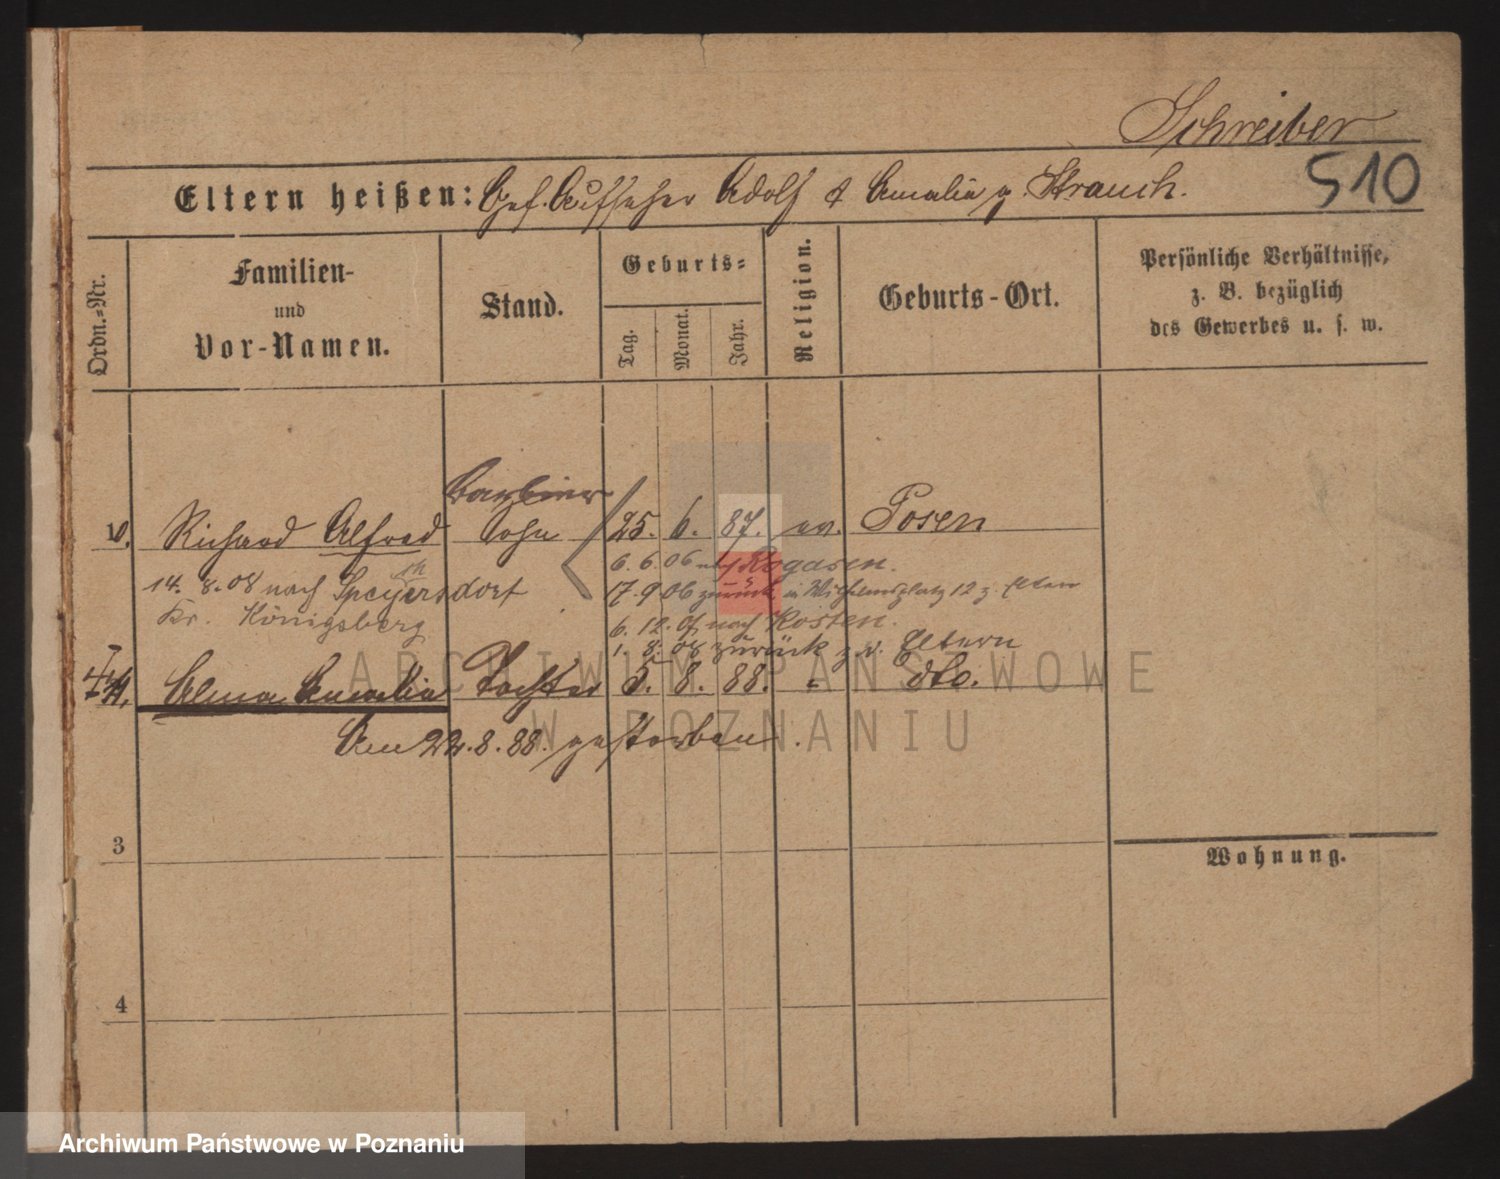 Schreiber
510
Eltern heißen: Gef. Aufseher Adolf & Amalia g. Strauch.
Ordn.-Nr.
Familien-
und
Vor-Namen.
Stand.
Geburts-
Tag.
Monat.
Jahr.
Religion.
Geburts-Ort.
Persönliche Verhältnisse,
z. B. bezüglich
des Gewerbes u. s. w.
Barbier
Richard Alfred Sohn 25. 6. 87. ev. Posen
6. 6. 06 nach Rogasen.
14. 8. 08 nach Speyersdorf
17. 9 06 zurück in Wilhelmsplatz 12 z. Eltern
Kr. Königsberg
6. 12. 07 nach Kosten.
1. 8. 08 zurück z. d. Eltern
Alma Amalia Tochter 5. 8. 88. " dto.
Am 22. 8. 88. gestorben.
3
Wohnung.
4
ARCHIWUM PAŃSTWOWE
W POZNANIU
Archiwum Państwowe w Poznaniu